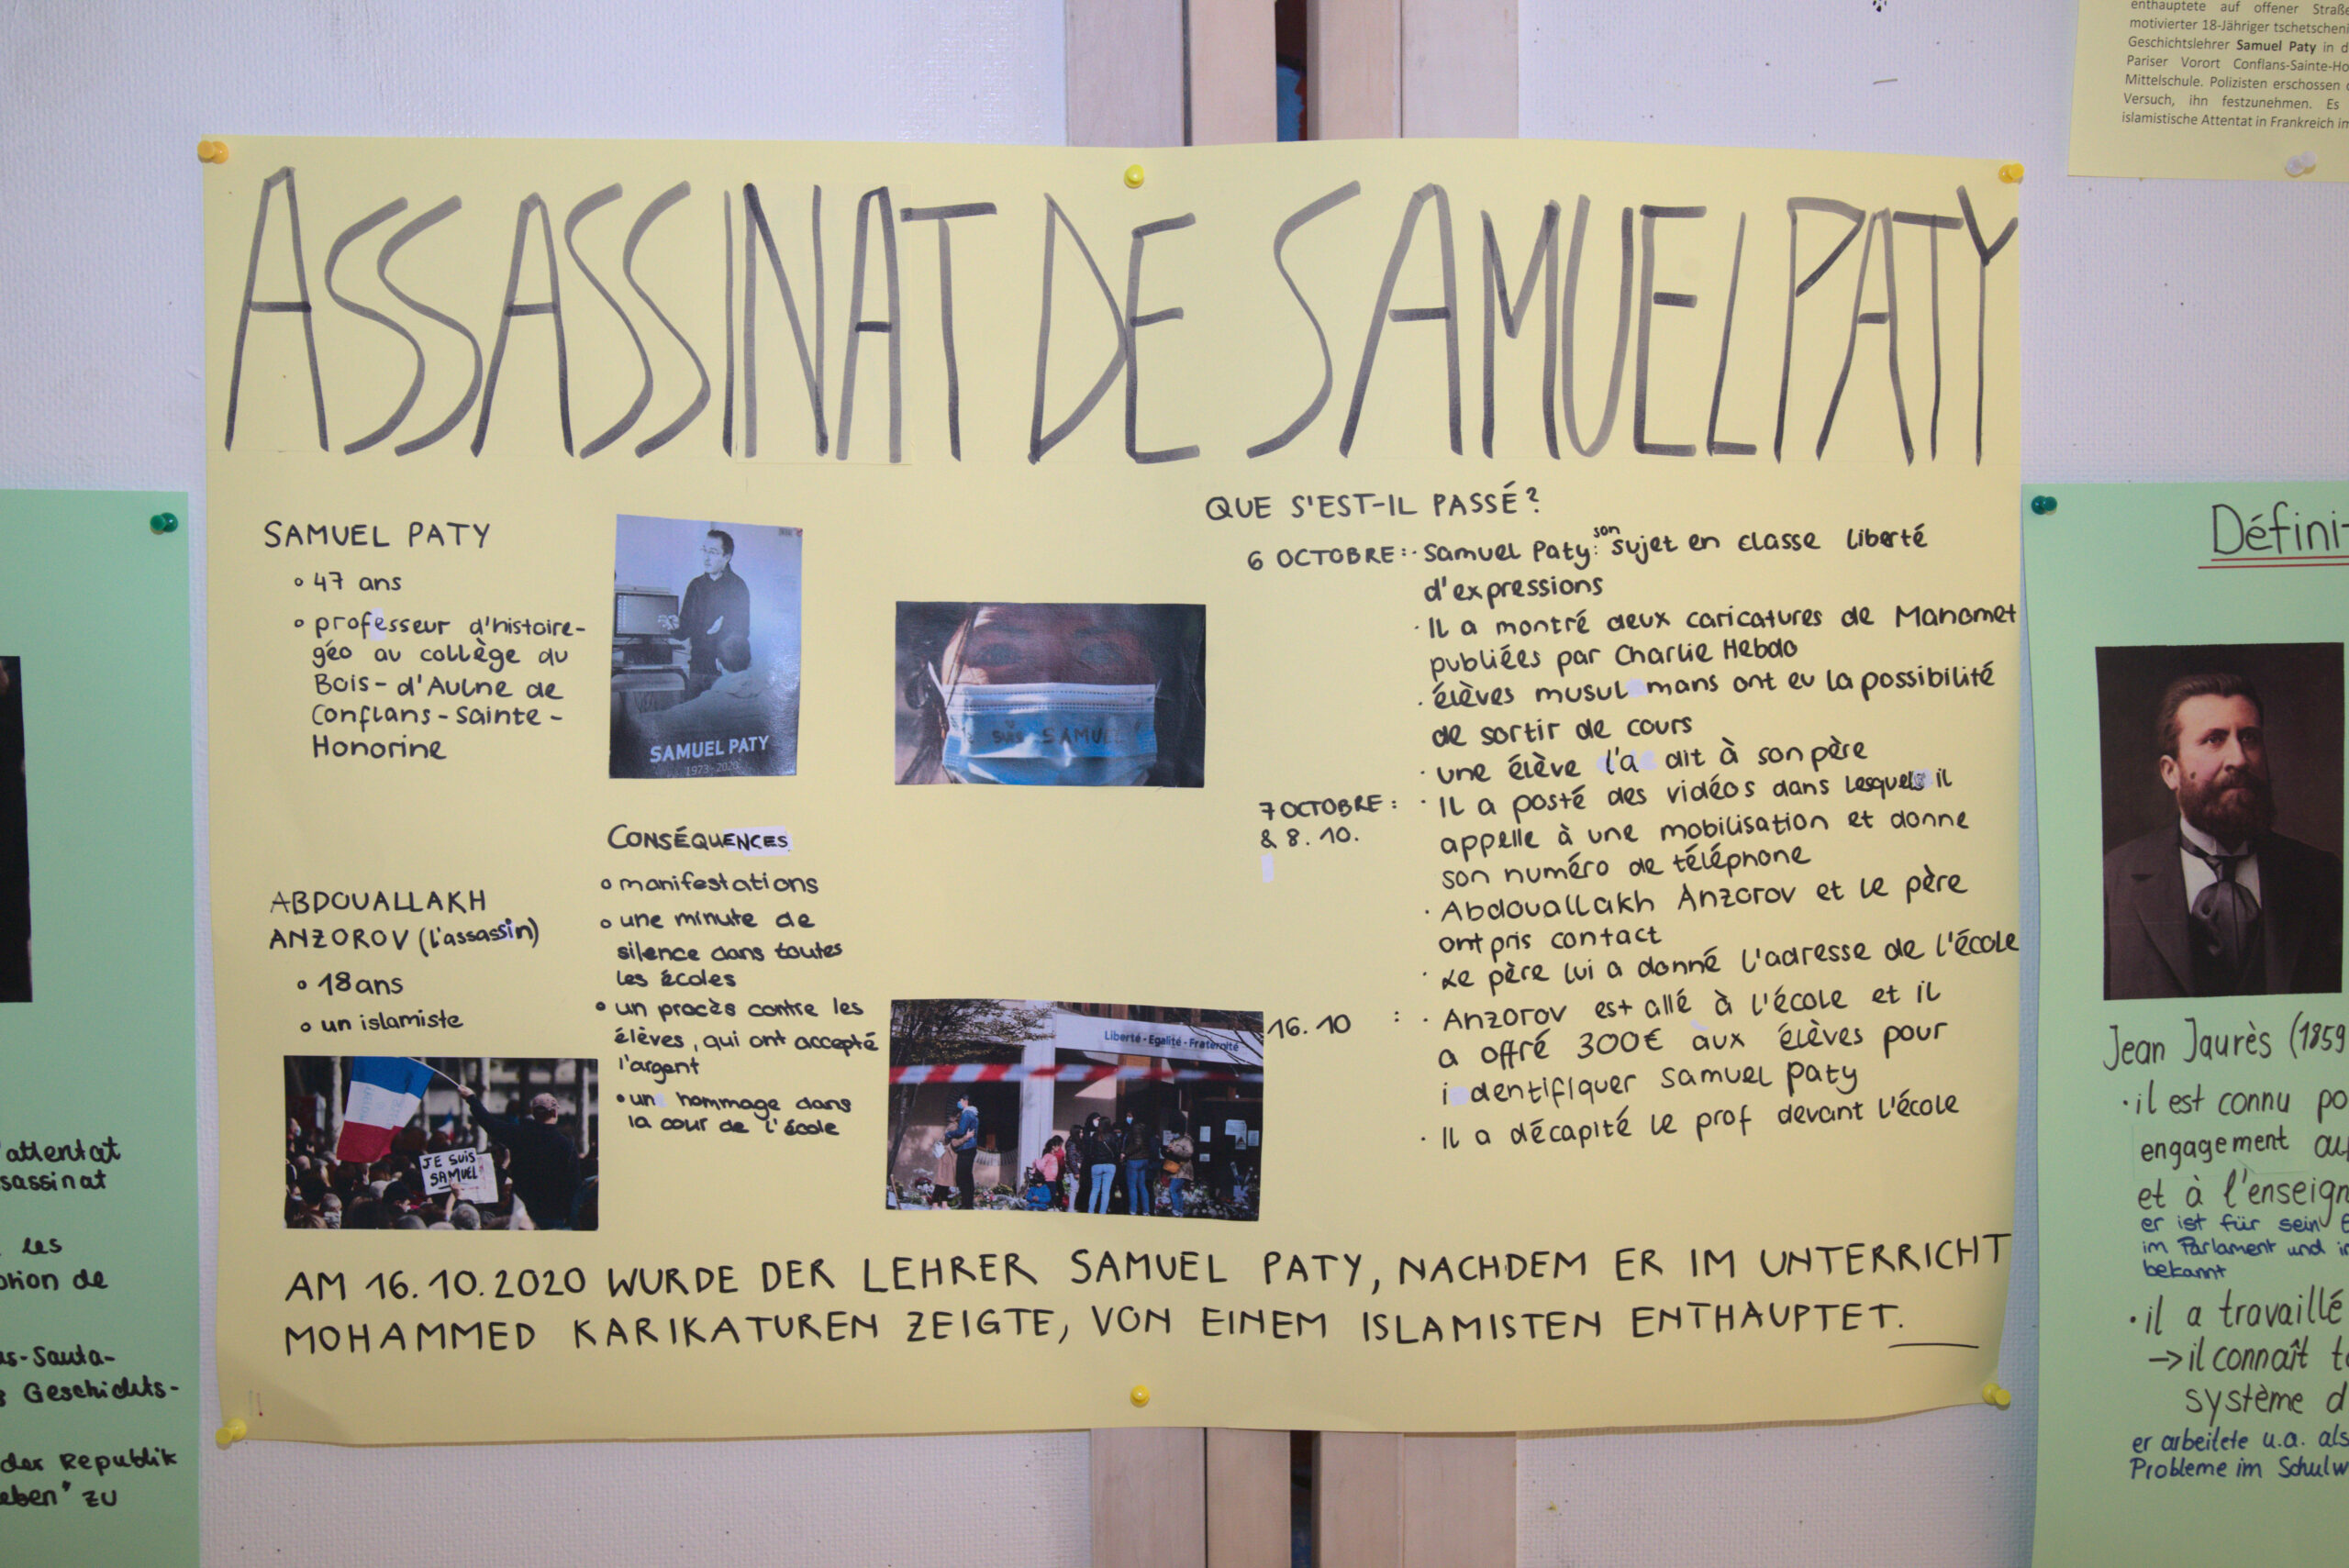 ASSASSINAT DE SAMUEL PATY
SAMUEL PATY
47 ans
professeur d'histoire-
géo au collège du
Bois-d'Aulne de
Conflans-Sainte-
Honorine
SAMUEL PATY
1973-2020
SAMUEL
ABDOUALLAKH
ANZOROV (l'assassin)
18 ans
un islamiste
JE SUIS
SAMUEL
CONSÉQUENCES
manifestations
une minute de
silence dans toutes
les écoles
un procès contre les
élèves, qui ont accepté
l'argent
un hommage dans
la cour de l'école
Liberté - Egalité - Fraternité
QUE S'EST-IL PASSÉ?
6 OCTOBRE: · Samuel Paty: son sujet en classe liberté
d'expressions
· Il a montré deux caricatures de Mahomet
publiées par Charlie Hebdo
· élèves musulmans ont eu la possibilité
de sortir de cours
· une élève l'a dit à son père
7 OCTOBRE: · Il a posté des vidéos dans lesquels il
& 8. 10.
appelle à une mobilisation et donne
son numéro de téléphone
· Abdouallakh Anzorov et le père
ont pris contact
· Le père lui a donné l'adresse de l'école
16. 10 : · Anzorov est allé à l'école et il
a offré 300€ aux élèves pour
identifiquer Samuel Paty
· Il a décapité le prof devant l'école
AM 16.10.2020 WURDE DER LEHRER SAMUEL PATY, NACHDEM ER IM UNTERRICHT
MOHAMMED KARIKATUREN ZEIGTE, VON EINEM ISLAMISTEN ENTHAUPTET.
enthauptete auf offener Straße
motivierter 18-Jähriger
Geschichtslehrer Samuel Paty in
Pariser Vorort Conflans-Sainte-
Mittelschule. Polizisten erschossen
Versuch, ihn festzunehmen. Es
islamistische Attentat in Frankreich
Jean Jaurès (1859
· il est connu
engagement
et à
er ist für sein
im Parlament und
bekannt
· il a travaillé
→ il connaît
système
er arbeitete u.a. als
Probleme im
'attentat
les
de
Geschichts-
der Republik
zu